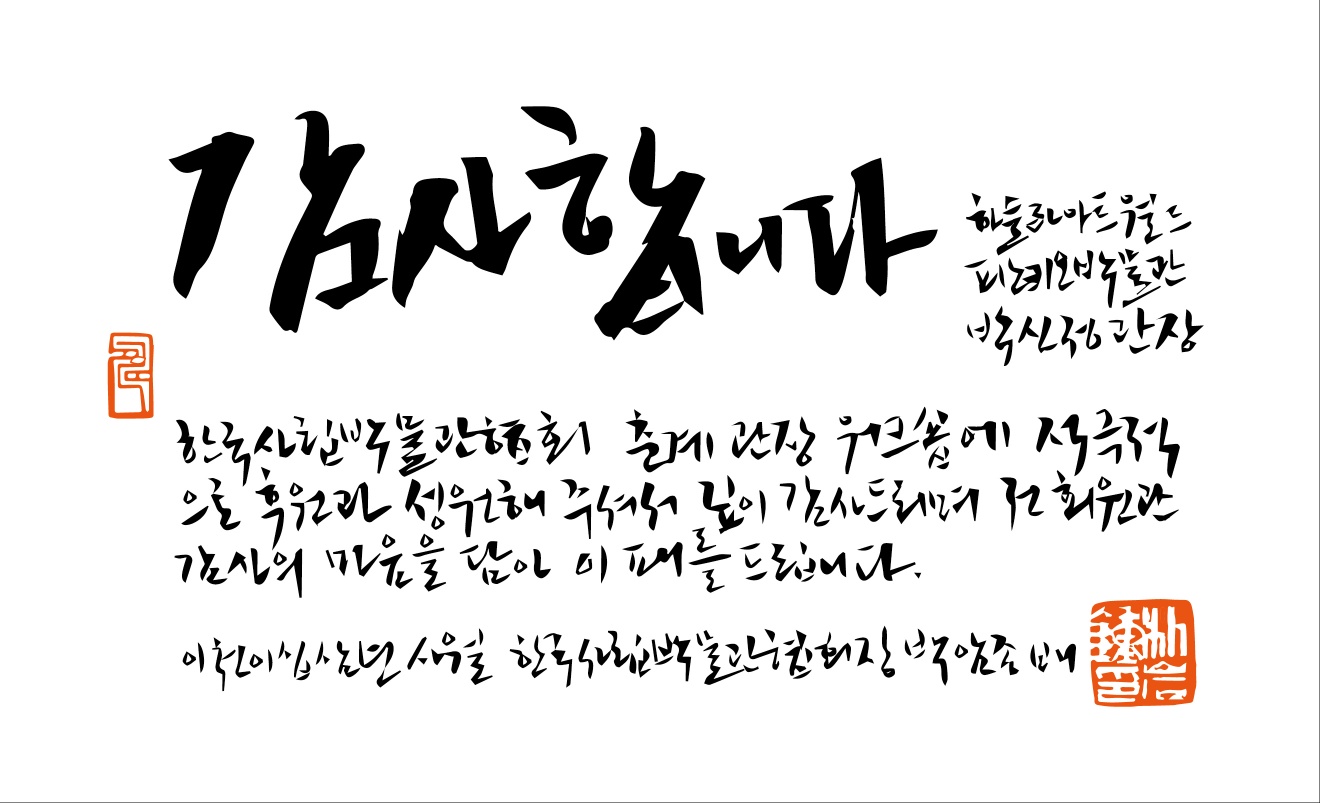 감사합니다
하슬라아트월드
피노키오박물관
박신정 관장
한국사립박물관협회 춘계 관장 워크숍에 적극적
으로 후원과 성원해 주셔서 깊이 감사드리며 전 회원관
감사의 마음을 담아 이 패를 드립니다.
이천이십삼년 사월 한국사립박물관협회장 박암종 배